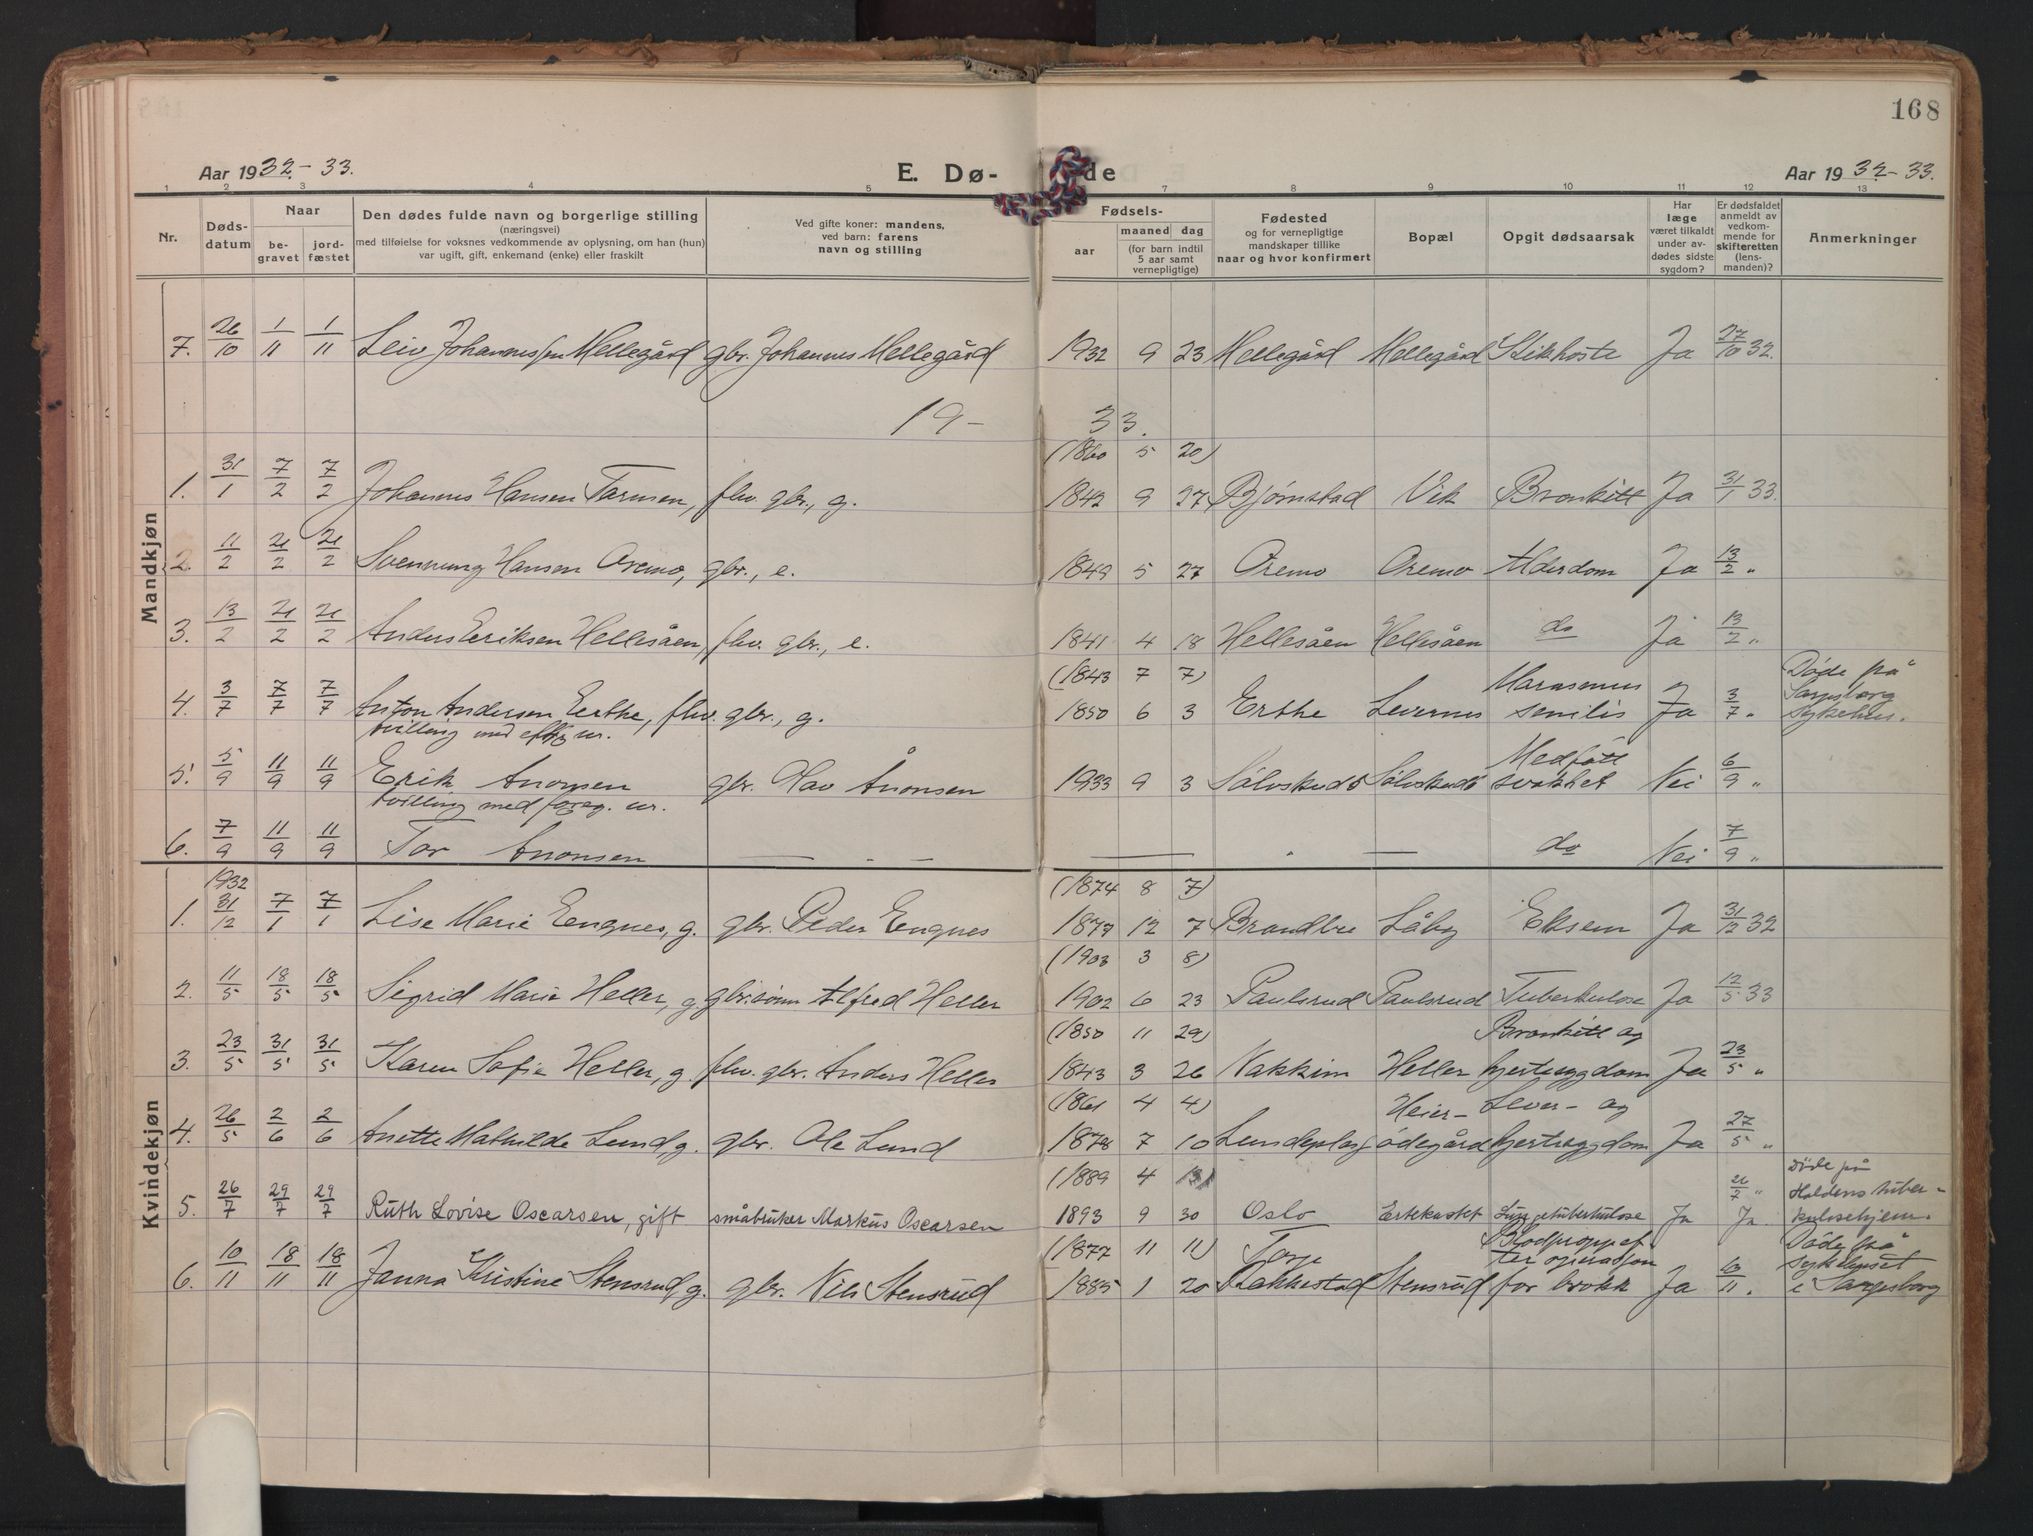 168
Aar 1932-33.
E. Dø-
de
Aar 1932-33.
1 2 3 4 5 7 8 9 10 11 12 13
Nr.
Døds-
datum
Naar
be-
gravet
jord-
fæstet
Den dødes fulde navn og borgerlige stilling
(næringsvei)
med tilføielse for voksnes vedkommende av oplysning, om han (hun)
var ugift, gift, enkemand (enke) eller fraskilt
Ved gifte koner: mandens,
ved barn: farens
navn og stilling
Fødsels-
aar
maaned dag
(for barn indtil
5 aar samt
vernepligtige)
Fødested
og for vernepligtige
mandskaper tillike
naar og hvor konfirmert
Bopæl
Opgit dødsaarsak
Har
læge
været tilkaldt
under av-
dødes sidste
sygdom?
Er dødsfaldet
anmeldt av
vedkom-
mende for
skifteretten
(lens-
manden)?
Anmerkninger
Mandkjøn
7. 26/10 1/11 1/11 Leiv Johannessen Mellegård gbr. Johannes Mellegård 1932 9 23 Mellegård Mellegård Stikhoste Ja 27/10 32.
19- 33.
(1860 5 20)
1. 31/1 7/2 7/2 Johannes Hansen Tarmen, fhv. gbr., g. 1842 9 27 Bjørnstad Vik Bronkitt Ja 31/1 33.
2. 11/2 21/2 21/2 Svennung Hansen Oremo, gbr., e. 1849 5 27 Oremo Oremo Alderdom Ja 13/2 "
3. 13/2 21/2 21/2 Anders Eriksen Hellesåen, fhv. gbr., e. 1841 4 18 Hellesåen Hellesåen do Ja 13/2 "
(1843 7 7) Marasmus Døde på
4. 3/7 7/7 7/7 Anton Andersen Erthe, fhv. gbr., g. 1850 6 3 Erthe Levernes senilis Ja 3/7 " Sarpsborg
tvilling med eftf. nr. Sykehus.
Medfødt
5. 5/9 11/9 11/9 Erik Anonsen gbr. Olav Ånonsen 1933 9 3 Sølvskudt Sølvskudt svakhet Nei 6/9 "
tvilling med foreg. nr.
6. 7/9 11/9 11/9 Tor Anonsen — " — — " — do Nei 7/9 "
Kvindekjøn
1932 (1874 8 7)
1. 31/12 7/1 7/1 Lise Marie Engnes, g. gbr. Peder Engnes 1877 12 7 Brandbu Låby Eksem Ja 31/12 32
(1903 3 8)
2. 11/5 18/5 18/5 Sigrid Marie Heller, g. gbr.sønn Alfred Heller 1902 6 23 Paulsrud Paulsrud Tuberkulose Ja 12/5 33
(1850 11 29) Bronkitt og
3. 23/5 31/5 31/5 Karen Sofie Heller, g. fhv. gbr. Anders Heller 1843 3 26 Nakkim Heller hjertesygdom Ja 23/5 "
(1861 4 4) Heier- Lever- og
4. 26/5 2/6 2/6 Anette Mathilde Lund, g. gbr. Ole Lund 1878 7 10 Lundeplass ødegård hjertesygdom Ja 27/5 "
(1889 4 13) Døde på
5. 26/7 29/7 29/7 Ruth Lovise Oscarsen, gift småbruker Markus Oscarsen 1893 9 30 Oslo Ertekastet Lungetuberkulose Ja 26/7 " Ja. Haldens tuber-
kulosehjem.
(1877 11 11) Torpe Blodpropp ef- Døde på
ter operasjon Sykehuset
6. 10/11 18/11 18/11 Janna Kristine Stensrud, g. gbr. Nils Stensrud 1885 1 20 Rakkestad Stensrud for brokk Ja 10/11 " i Sarpsborg